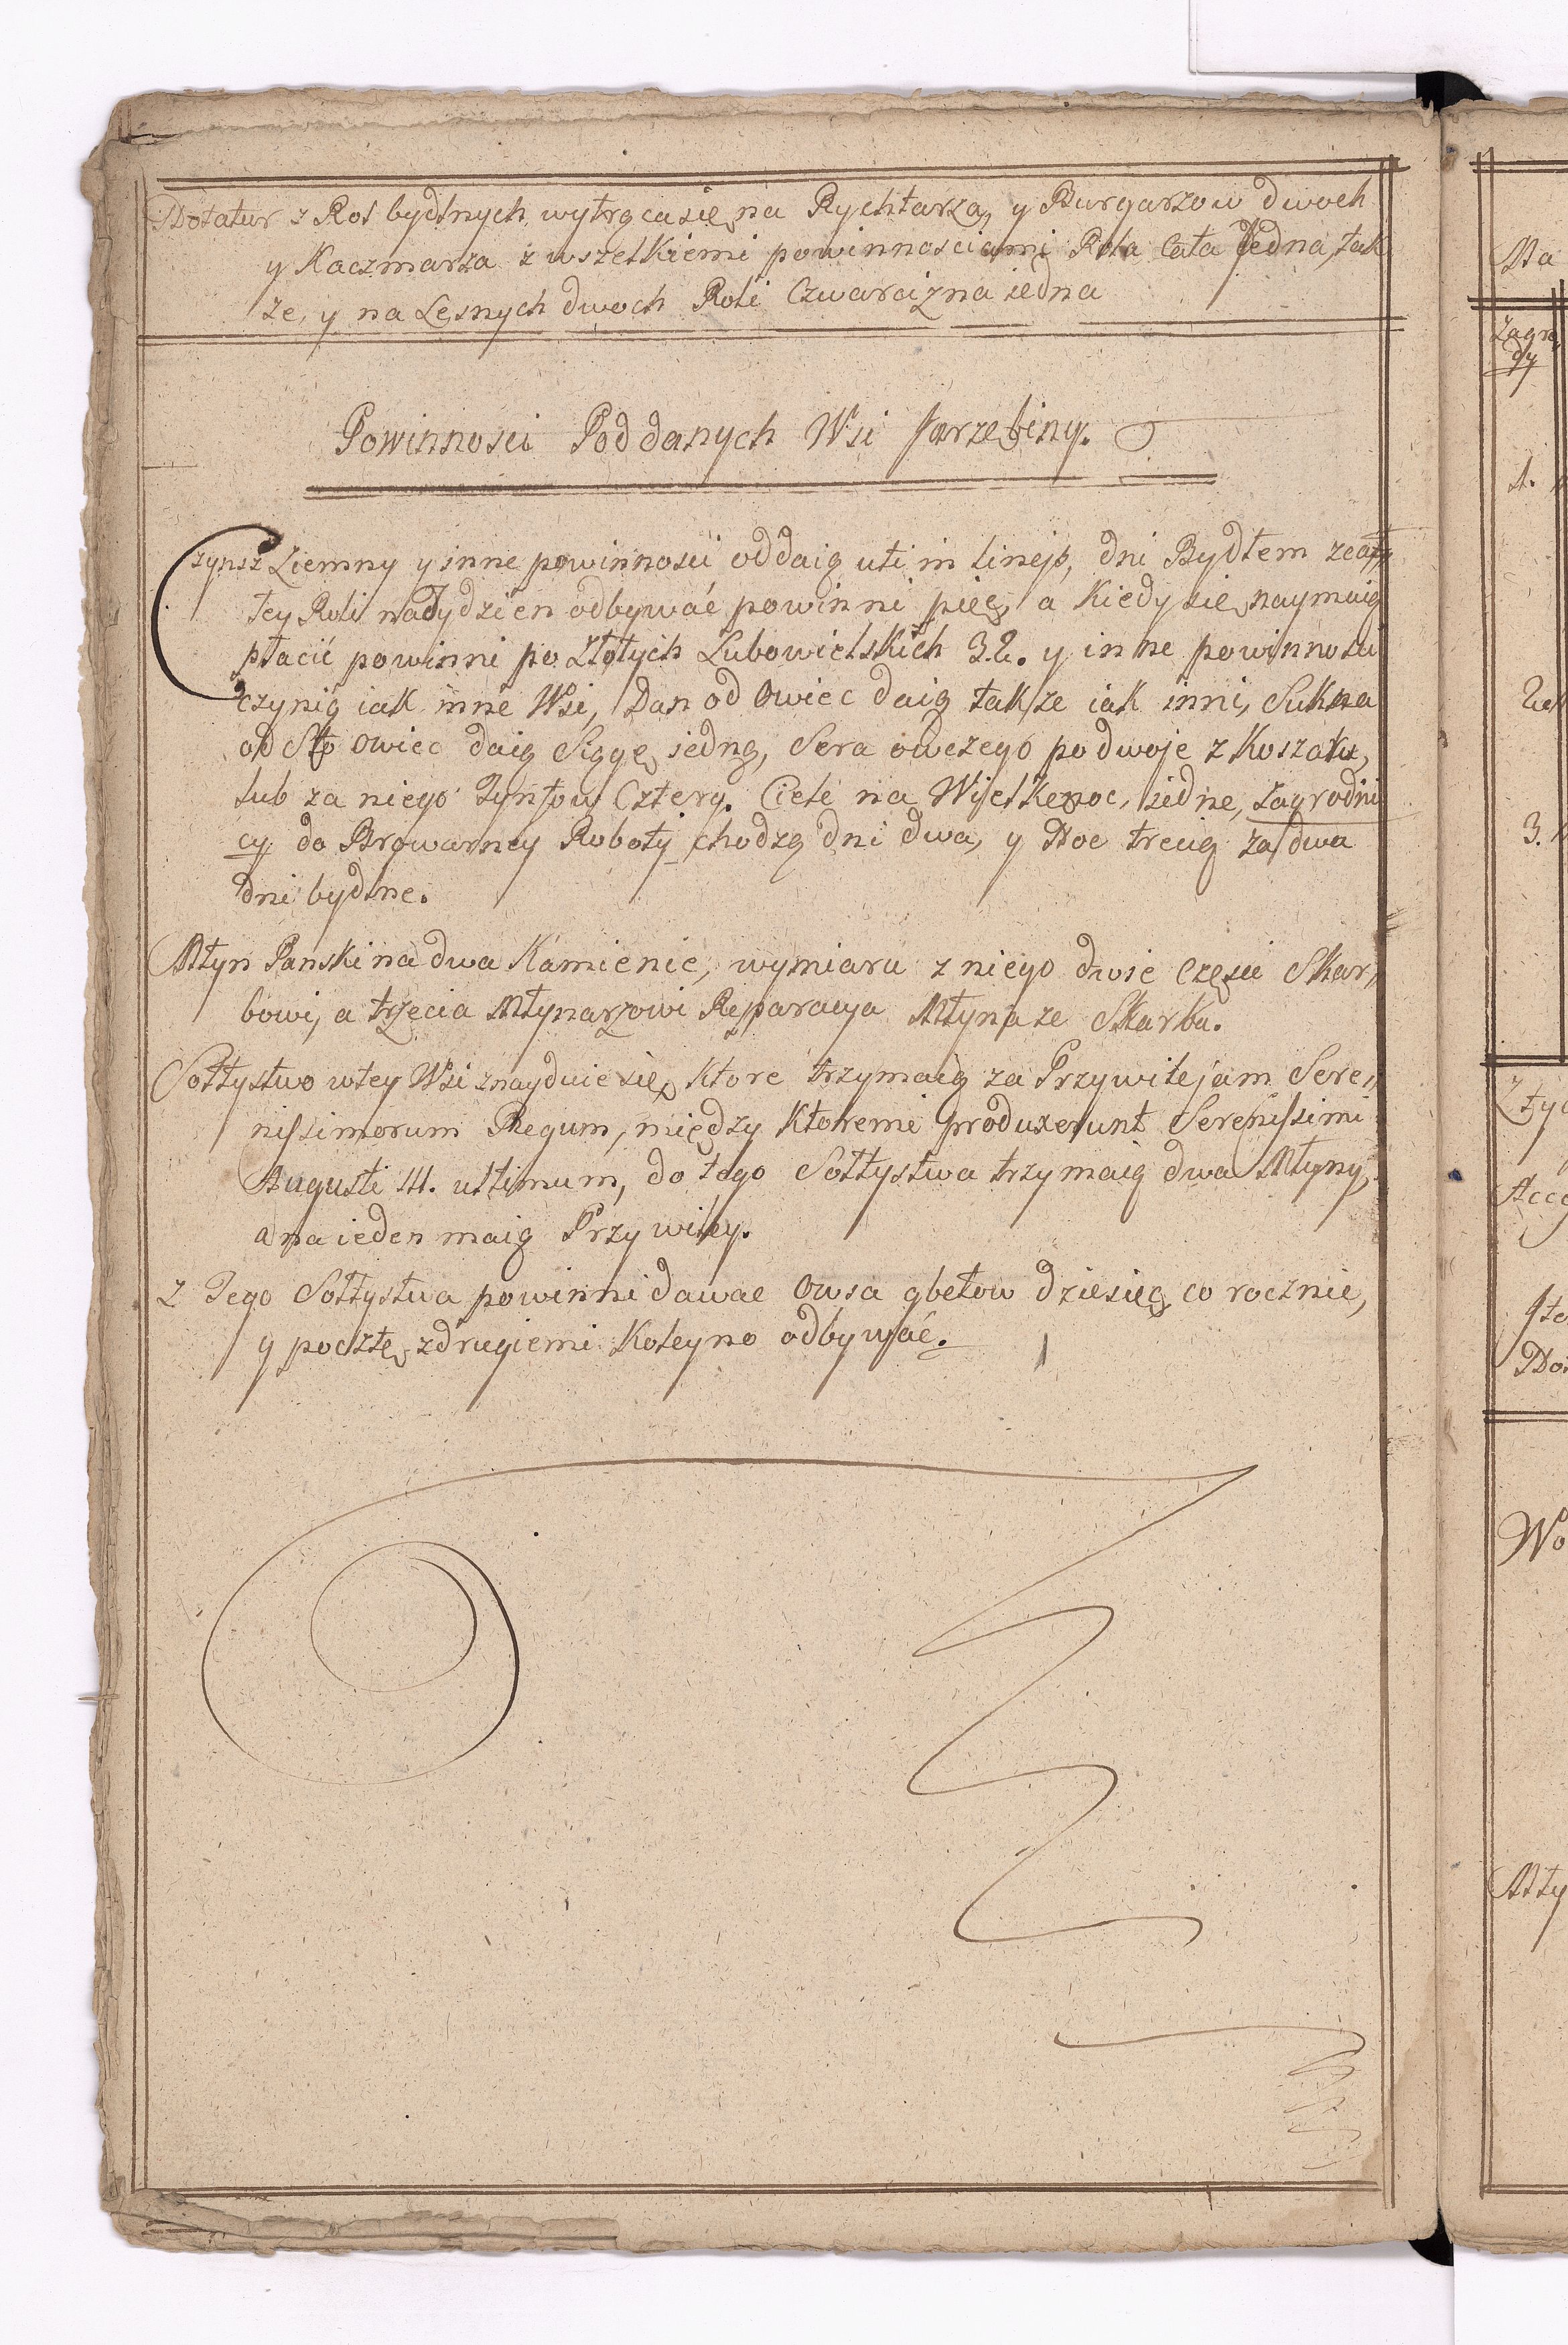 Notatur z Rol bydlnych wytrąca się na Rychtarza, y Burgarzow dwoch
y Kaczmarza z wszelkiemi powinnosciami Rola Cała Jedna, tak
że, y na Lesnych dwoch Roli Czwarcizna iedna
Powinnosci Poddanych Wsi Jarzębiny.
Czynsz Ziemny y inne powinnosci oddaią uti in lineis, dni Bydłem z cał
łey Roli na Tydzien odbywać powinni pięć, a kiedy się naymaią
płacić powinni po Złotych Lubowielskich 32. y inne powinnosci
czynią iak inne Wsi, Dan od Owiec daią także iak inni, Sukna
od Sto owiec daią Sągę iedną, Sera owczego po dwoje z Koszaru,
lub za niego Tynfow Cztery. Ciele na Wielkenoc, iedne, Zagrodni
cy do Browarney Roboty chodzą dni dwa, y Noc trecią za dwa
dni bydlne.
Młyn Panski na dwa Kamienie, wymiaru z niego dwie Częsci Skar
bowi, a trzecia Młynarzowi Reparacya Młyna ze Skarbu.
Sołtystwo w tey Wsi znayduie się, ktore trzymaią za Przywilejam Sere
nissimorum Regum, między ktoremi produxerunt Serenissimi
Augusti III. ultimum, do tego Sołtystwa trzymaią dwa Młyny,
a na ieden maią Przywiley.
Z Tego Sołtystwa powinni dawac Owsa gbełow dziesięć co rocznie,
y pocztę z drugiemi Koleyno odbywać.
Na
Zagro
dy
1.
3.
Wo
Mły